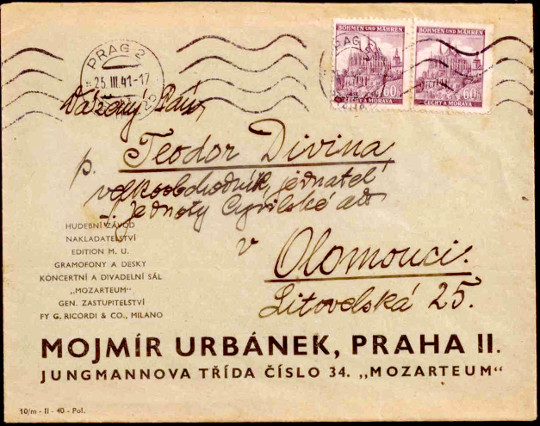 PRAG 2
25.III.41-17
BÖHMEN UND MÄHREN
60
ČECHY A MORAVA
BÖHMEN UND MÄHREN
60
ČECHY A MORAVA
Vážený Pán,
p. Teodor Divina
velkoobchodník, jednatel
Jednoty Cyrilské atd
v Olomouci.
Litovelská 25.
HUDEBNÍ ZÁVOD
NAKLADATELSTVÍ
EDITION M. U.
GRAMOFONY A DESKY
KONCERTNÍ A DIVADELNÍ SÁL
„MOZARTEUM"
GEN. ZASTUPITELSTVÍ
FY G. RICORDI & CO., MILANO
MOJMÍR URBÁNEK, PRAHA II.
JUNGMANNOVA TŘÍDA ČÍSLO 34. „MOZARTEUM"
10/m - II - 40 - Pol.